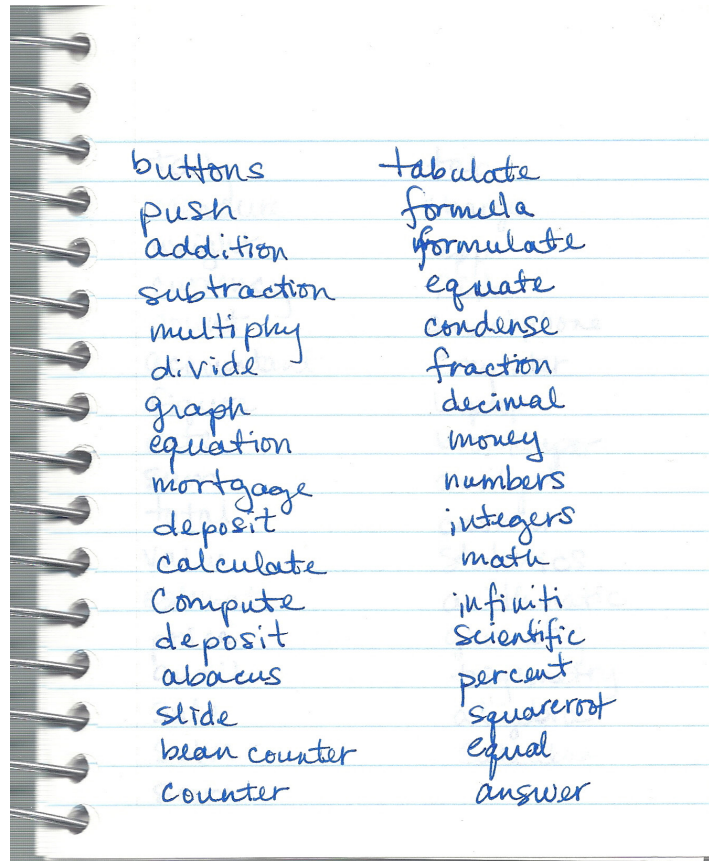 buttons
push
addition
subtraction
multiply
divide
graph
equation
mortgage
deposit
calculate
compute
deposit
abacus
slide
bean counter
counter
tabulate
formula
formulate
equate
condense
fraction
decimal
money
numbers
integers
math
infiniti
scientific
percent
squareroot
equal
answer